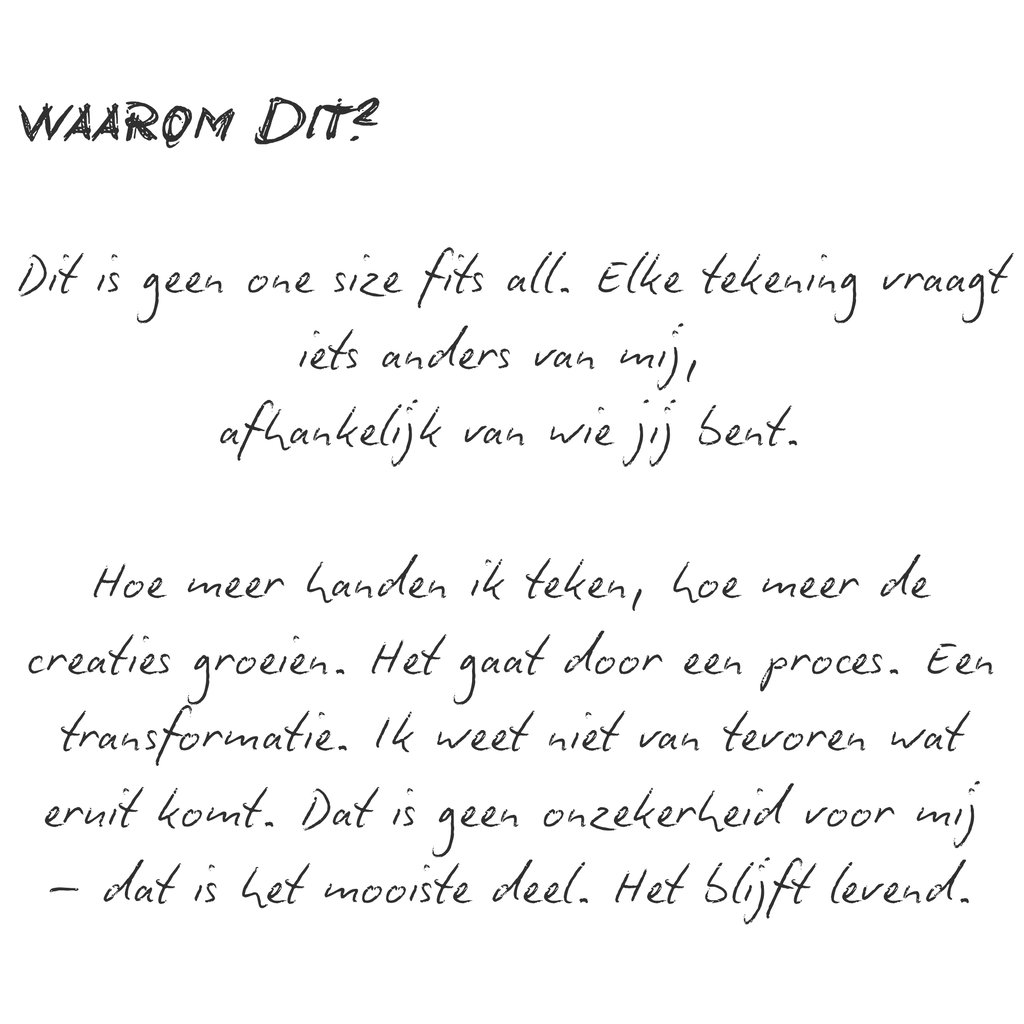 WAAROM DIT?
Dit is geen one size fits all. Elke tekening vraagt
iets anders van mij,
afhankelijk van wie jij bent.
Hoe meer handen ik teken, hoe meer de
creaties groeien. Het gaat door een proces. Een
transformatie. Ik weet niet van tevoren wat
eruit komt. Dat is geen onzekerheid voor mij
– dat is het mooiste deel. Het blijft levend.